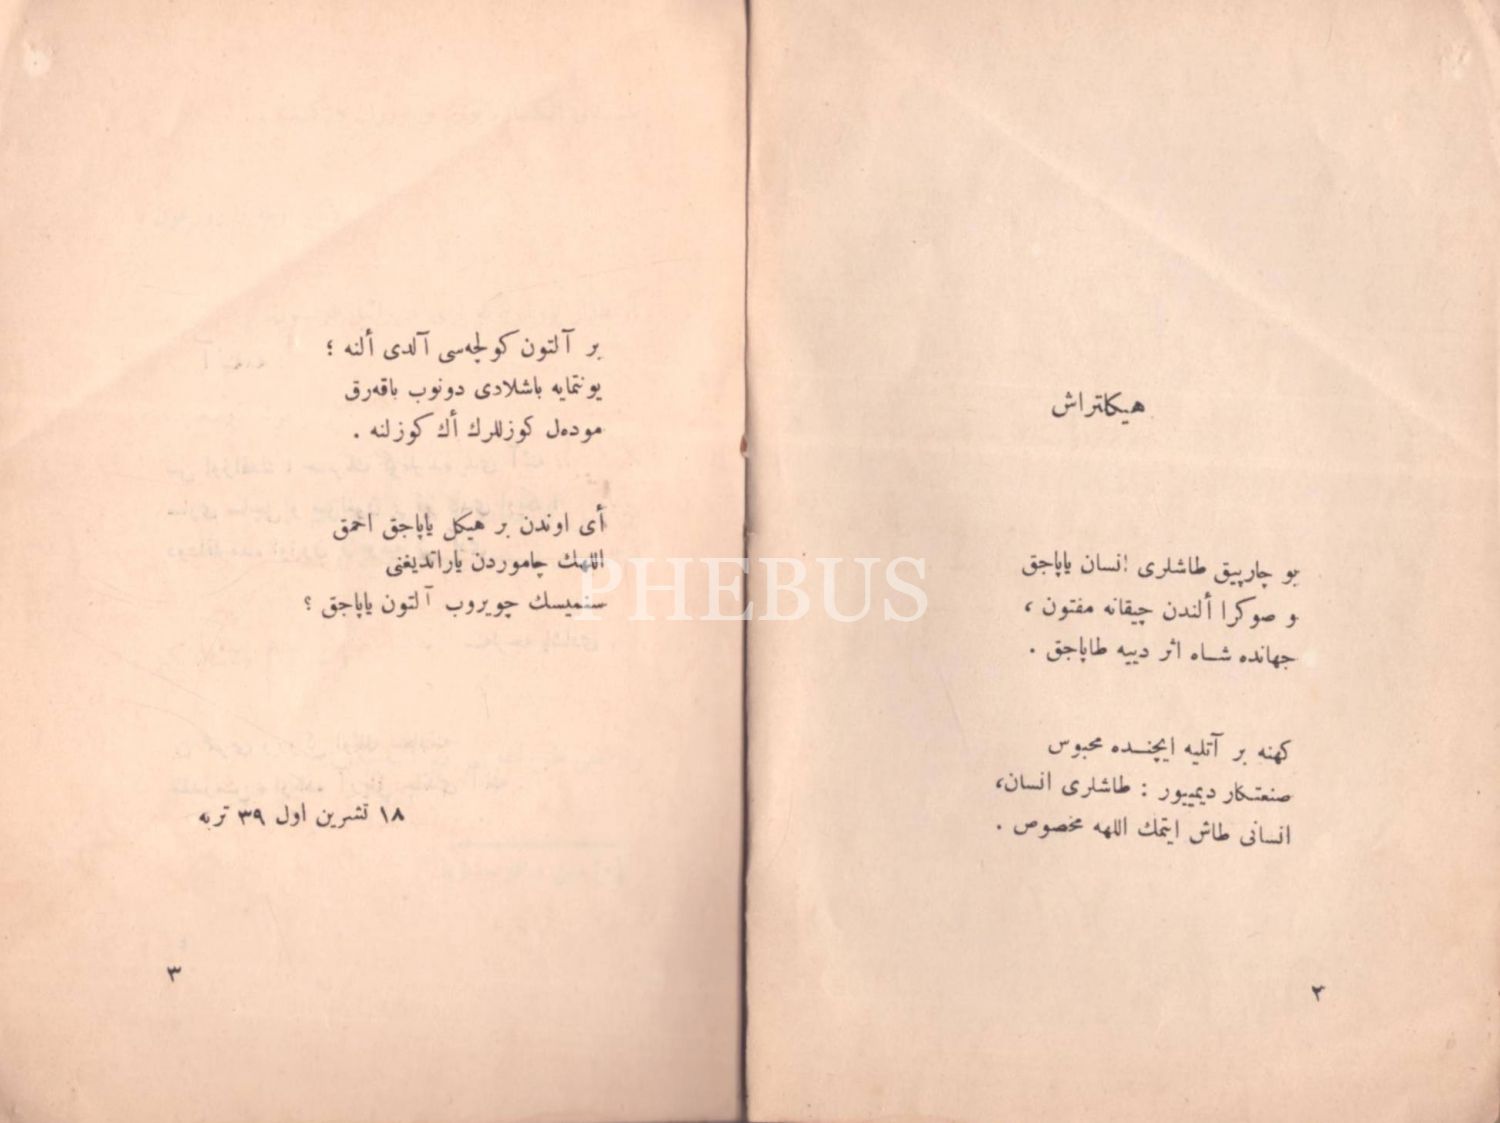 هيكلتراش
بو چارپيق طاشلرى انسان ياپاجق
و صوكرا ألندن چيقانه مفتون ،
جهانده شاه اثر دييه طاپاجق .
كهنه بر آتليه ايچنده محبوس
صنعتكار ديمييور : طاشلرى انسان،
انسانى طاش ايتمك اللهه مخصوص .
٢
بر آلتون كولچه‌سى آلدى ألنه ؛
يونتمايه باشلادى دونوب باقه‌رق
موده‌ل كوزللرك أك كوزلنه .
أى اوندن بر هيكل ياپاجق احمق
اللهك چاموردن ياراتديغنى
سنميسك چويروب آلتون ياپاجق ؟
١٨ تشرين اول ٣٩ تربه
٣
PHEBUS